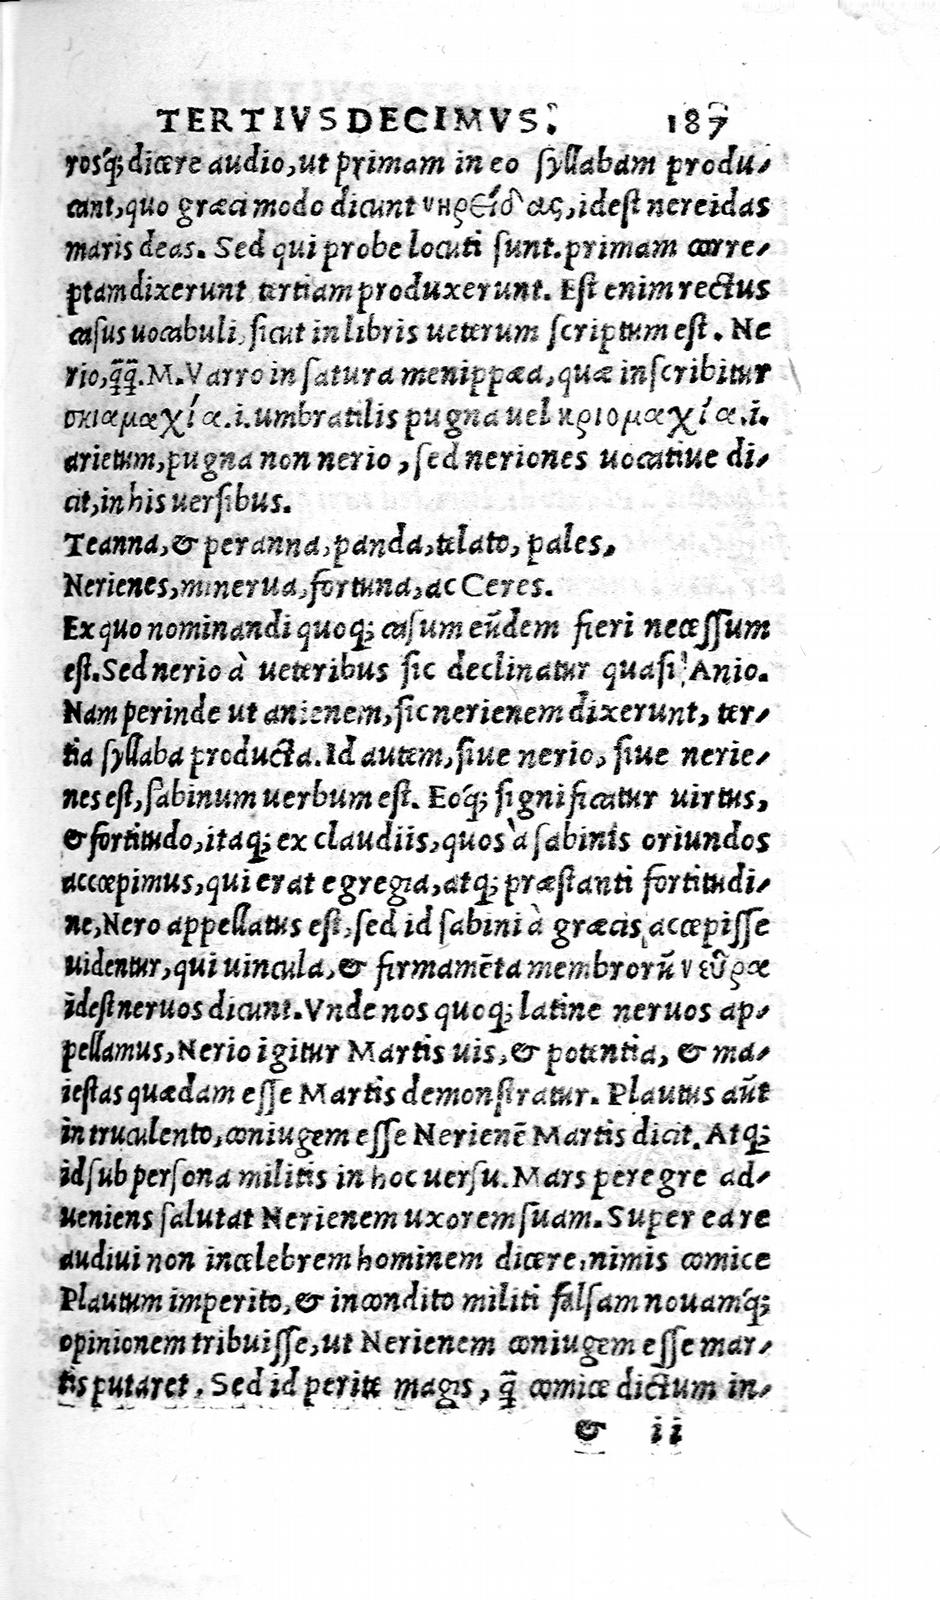 TERTIVSDECIMVS. 187
rosq́; dicere audio, ut primam in eo syllabam produ-
cant, quo græci modo dicunt νηρείδας, idest nereidas
maris deas. Sed qui probe locuti sunt. primam corre-
ptam dixerunt tertiam produxerunt. Est enim rectus
casus uocabuli, sicut in libris ueterum scriptum est. Ne
rio, q̃q̃. M. Varro in satura menippæa, quæ inscribitur
σκιαμαχία .i. umbratilis pugna uel κριομαχία .i.
arietum, pugna non nerio, sed neriones uocatiue di-
cit, in his uersibus.
Te anna, & peranna, panda, telato, pales,
Nerienes, minerua, fortuna, ac Ceres.
Ex quo nominandi quoq; casum eũdem fieri necessum
est. Sed nerio à ueteribus sic declinatur quasi Anio.
Nam perinde ut anienem, sic nerienem dixerunt, ter-
tia syllaba producta. Id autem, siue nerio, siue nerie-
nes est, sabinum uerbum est. Eoq́; significatur uirtus,
& fortitudo, itaq; ex claudiis, quos à sabinis oriundos
accœpimus, qui erat egregia, atq; præstanti fortitudi-
ne, Nero appellatus est, sed id sabini à græcis accœpisse
uidentur, qui uincula, & firmamẽta membrorũ νεῦρα
idest neruos dicunt. Vnde nos quoq; latine neruos ap-
pellamus, Nerio igitur Martis uis, & potentia, & ma-
iestas quædam esse Martis demonstratur. Plautus aũt
in truculento, coniugem esse Nerienẽ Martis dicit. Atq;
id sub persona militis in hoc uersu. Mars peregre ad-
ueniens salutat Nerienem uxorem suam. Super ea re
audiui non incelebrem hominem dicere, nimis comice
Plautum imperito, & incondito militi falsam nouamq́;
opinionem tribuisse, ut Nerienem coniugem esse mar-
tis putaret. Sed id perite magis, q̃ comice dictum in-
& ii